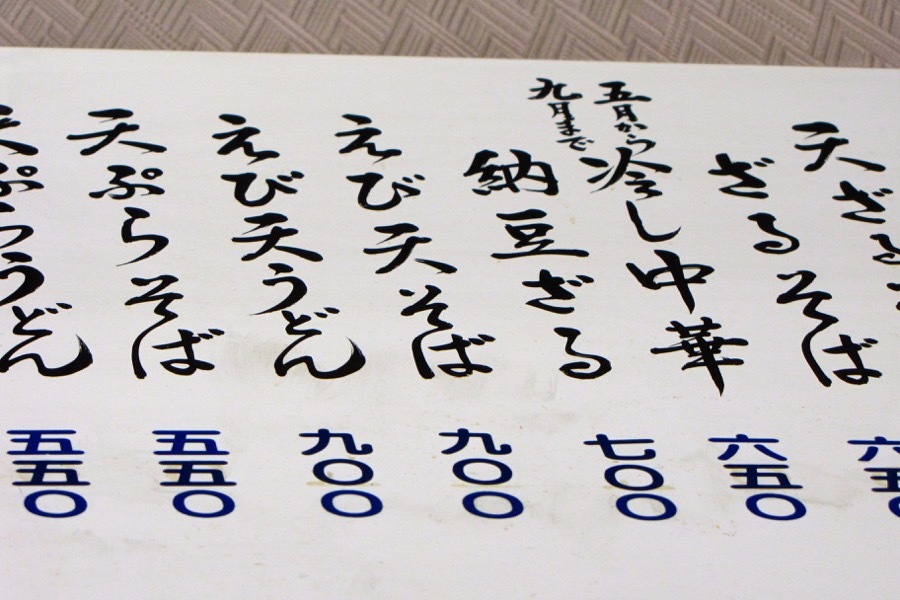 天ざる
ざるそば
六五〇
五月から
九月まで
冷し中華
六五〇
納豆ざる
七〇〇
えび天そば
九〇〇
えび天うどん
九〇〇
天ぷらそば
五五〇
天ぷらうどん
五五〇